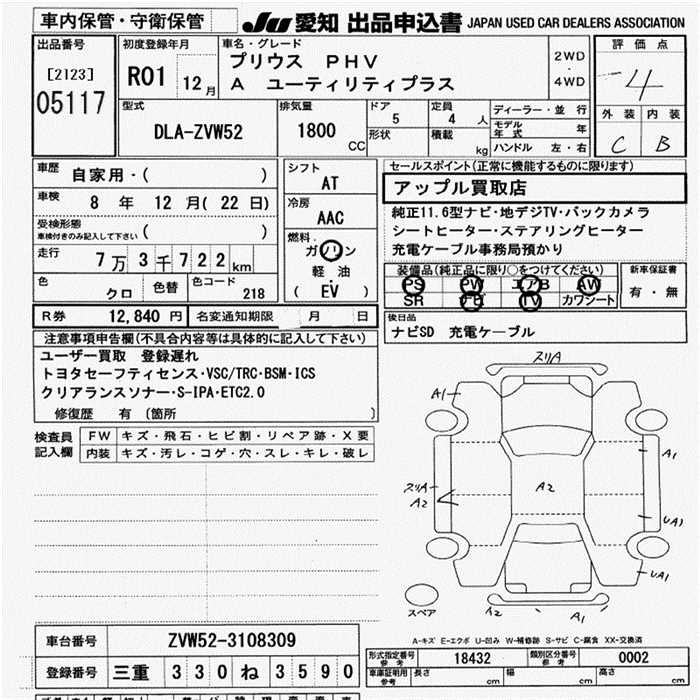 車内保管・守衛保管 JU 愛知 出品申込書 JAPAN USED CAR DEALERS ASSOCIATION
出品番号
[2123]
05117
初度登録年月
R01 12月
車名・グレード
プリウス PHV
A ユーティリティプラス
2WD
・
4WD
評価点
4
外装 内装
C B
型式
DLA-ZVW52
排気量
1800 CC
ドア
5
形状
定員
4 人
積載
kg
ディーラー・並行
モデル年式 年
ハンドル 左・右
車歴
自家用・( )
車検
8 年 12 月( 22 日)
受検形態
車検付きのみ記入して下さい ( )
走行
7万3千722km
色
クロ
色替
色コード
218
シフト
AT
冷房
AAC
燃料
ガソリン
軽油
( EV )
セールスポイント(正常に機能するものに限ります)
アップル買取店
純正11.6型ナビ・地デジTV・バックカメラ
シートヒーター・ステアリングヒーター
充電ケーブル事務局預かり
装備品(純正品に限り○をつけてください)
PS PW エアB AW
SR ナビ TV カワシート
新車保証書
有・無
R券 12,840円 名変通知期限 月 日
後日品
ナビSD 充電ケーブル
注意事項申告欄(不具合内容等は具体的に記入して下さい)
ユーザー買取 登録遅れ
トヨタセーフティセンス・VSC/TRC・BSM・ICS
クリアランスソナー・S-IPA・ETC2.0
修復歴 有 (箇所 )
検査員記入欄
FW キズ・飛石・ヒビ割・リペア跡・X要
内装 キズ・汚レ・コゲ・穴・スレ・キレ・破レ
スリA
A1
A1
スリA
A2
A2
UA1
UA1
スペア
A2
A1
A-キズ E-エクボ U-凹み W-補修跡 S-サビ C-腐食 XX-交換済
車台番号 ZVW52-3108309
登録番号 三重 330 ね 3590
形式指定番号 参考 18432 類別区分番号 参考 0002
車庫証明用 参考 長さ cm 幅 cm 高さ cm